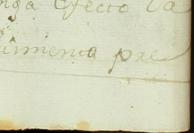 nga Efecto la
uimienta pre